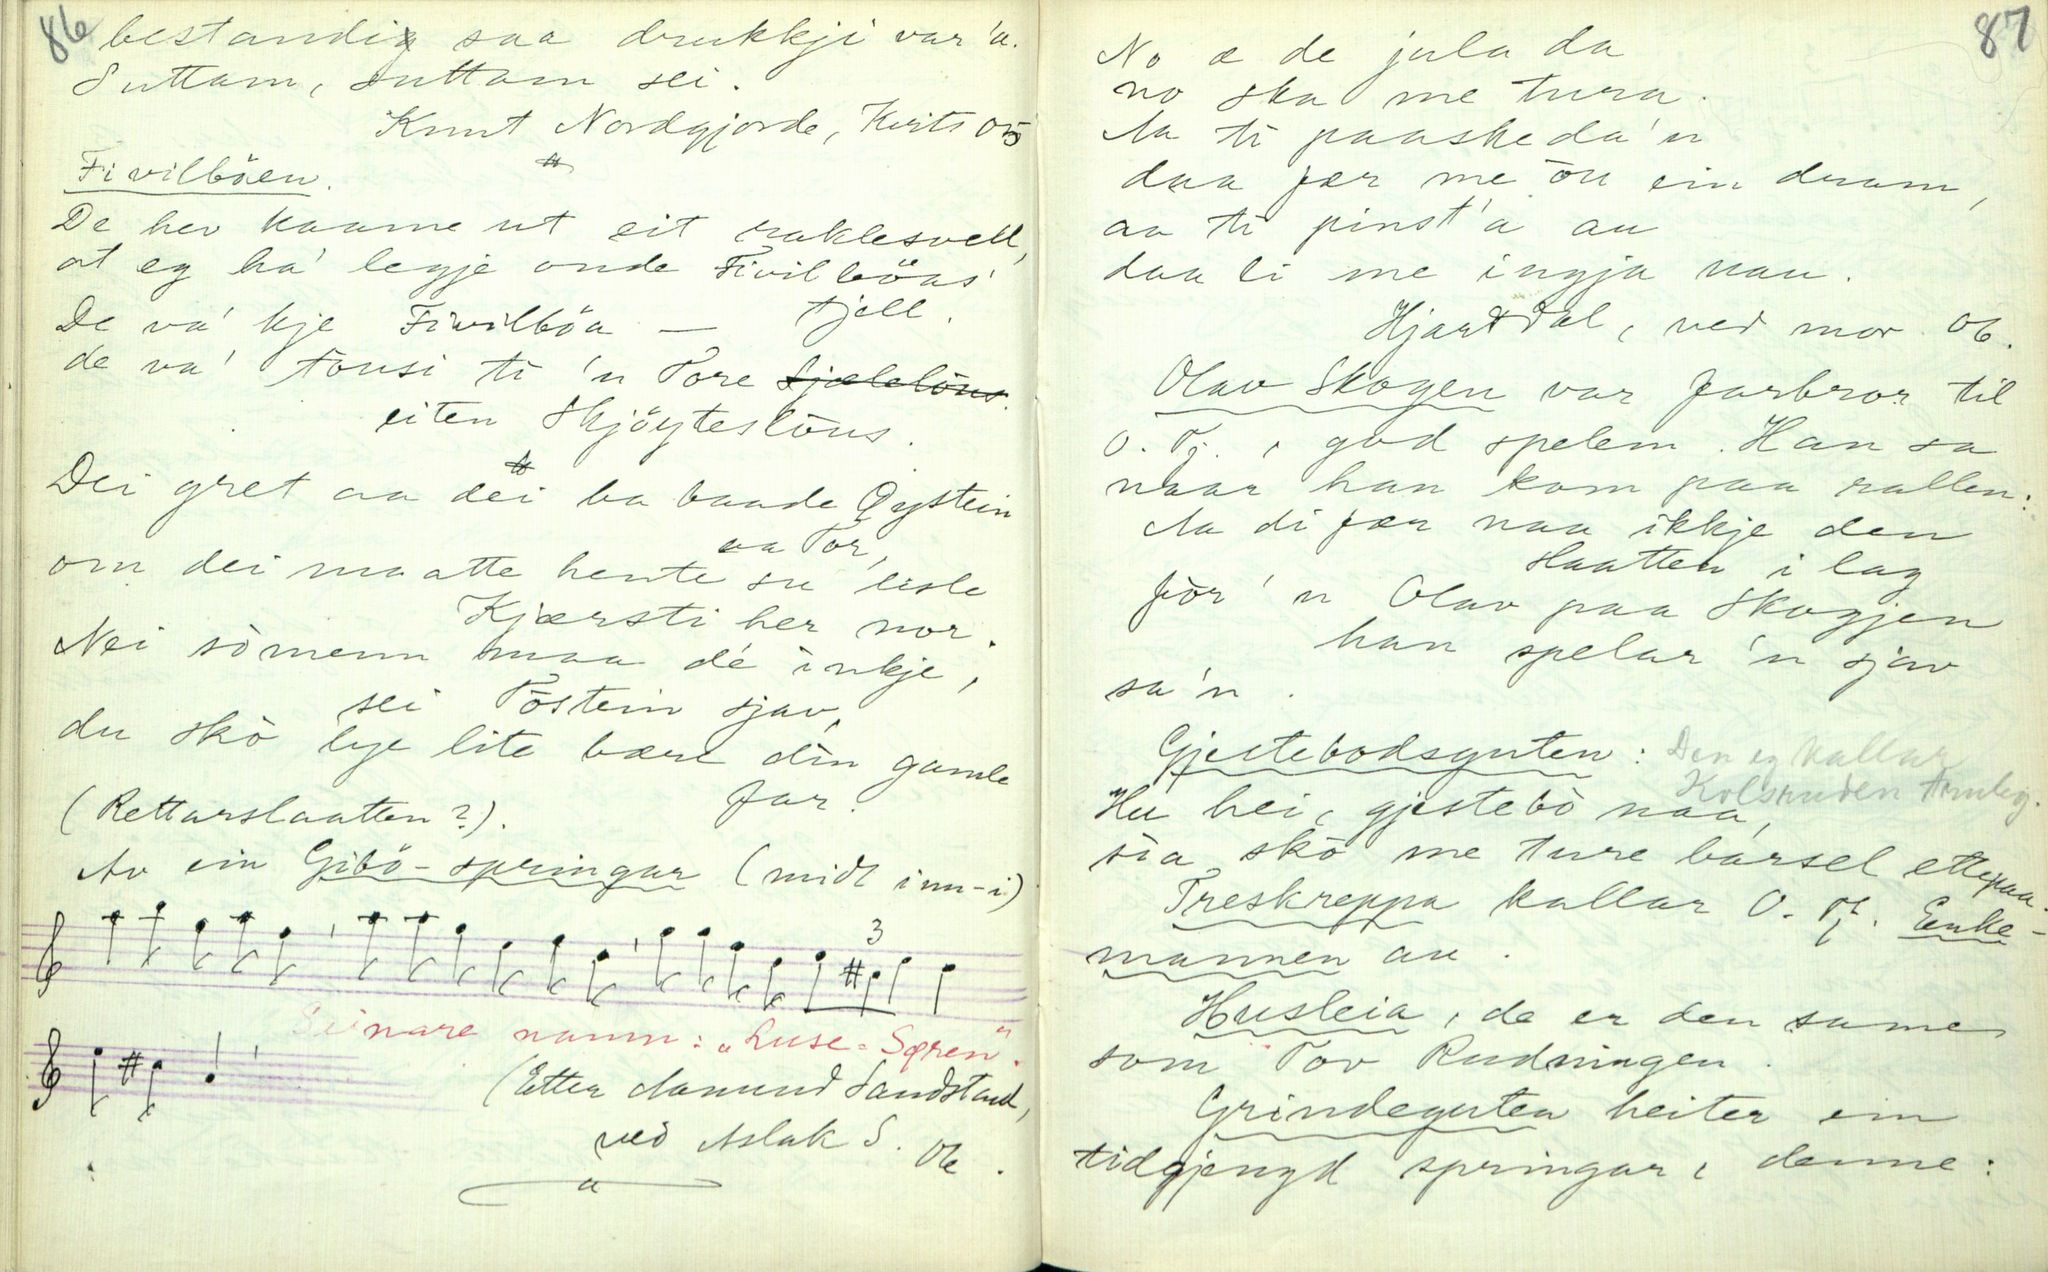 86
bestandig saa drukkji var 'a.
Suttam, suttam sei.
Knut Nordgjorde, Kvits 05
Fivilböen.
De hev kaame ut eit raklesvell,
at eg ha' legje onde Fivilböas'
fjell.
De va' kje Fivilböa —
de va' tousi ti 'n Tore Sjælelöns.
eiten Skjöyteslöns.
Dei gret aa dei ba baade Øystein
aa Tor,
om dei maatte hente su lisle
Kjærsti her nor.
Nei sömenn maa de inkje,
sei Töstein sjav,
du skö lye lite bære din gamle
far.
(Rettarslaatten?).
Av ein Gibö-springar (midt inn-i)
3
Seinare namn: "Luse-Søren".
(Etter Aamund Sandstad,
ved Aslak S. 06.
87
No æ de jula da
no ska me tura.
Aa ti paaskeda'n
daa fær me ön ein dram,
aa ti pinst'a au
daa li me ingja nau.
Hjartdal, ved mor 06.
Olav Skogen var farbror til
O. Tj., god spelem. Han sa
naar han kom paa rallen:
Aa di fær naa ikkje den
slaatten i lag
för 'n Olav paa Skogjen
han spelar 'n sjav
sa'n.
Gjestebodsguten: Den eg kallar
Kolsruden truleg.
Hu hei, gjestebö naa,
sia skö me ture barsel ettepaa.
Treskreppa kallar O. Tj. Enke-
mannen au.
Husleia, de er den same
som Tov Rudningen.
Grindeguten heiter ein
tidgjengd springar, denne: